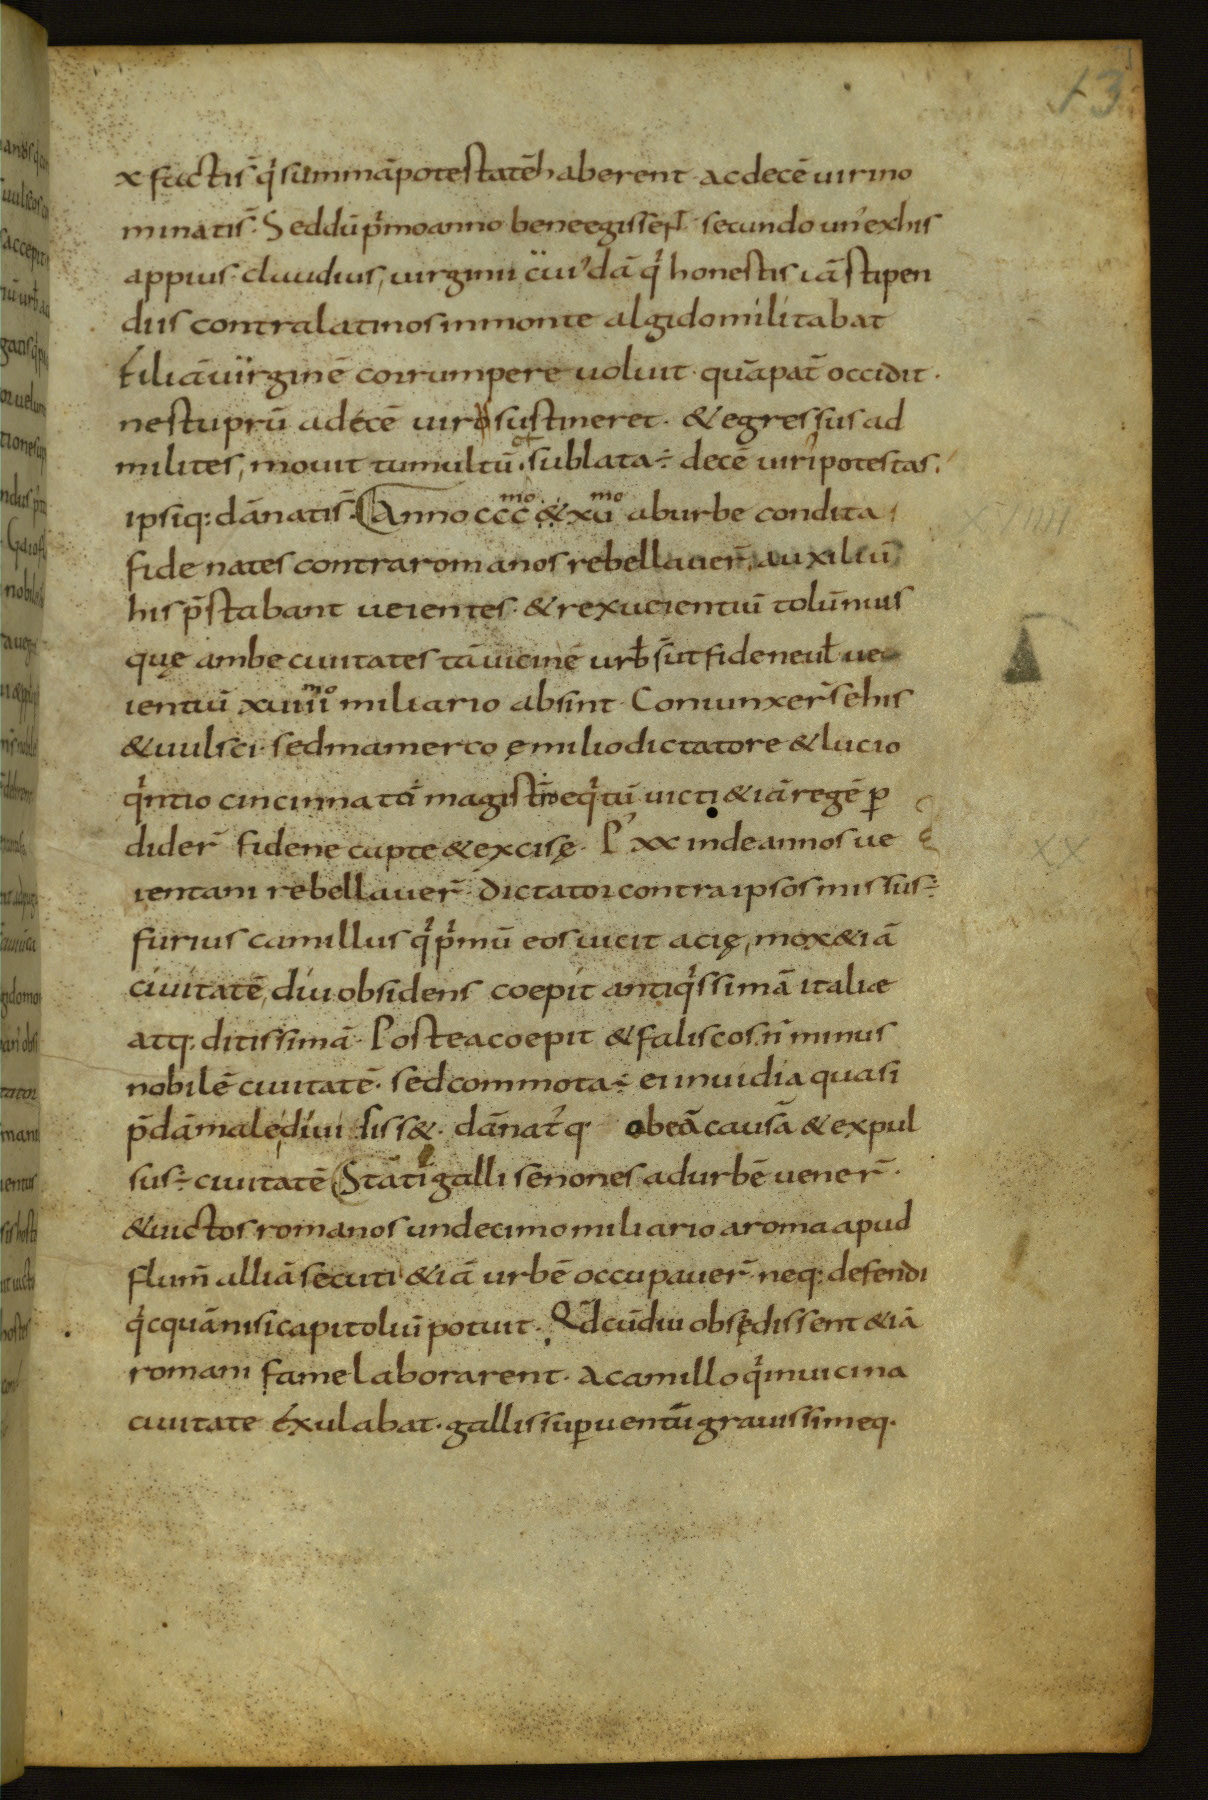 13
x factis qͥ summā potestatē haberent ac decē uiri no
minatis̄. Sed dū pͥmo anno bene egissent secundo un' ex his
appius claudius, uirginii cui'dā qͥ honestis iā stipen
diis contra latinos in monte algido militabat
filiā uirginē corrumpere uoluit. quā pat̄ occidit.
ne stuprū a decē uiro sustineret. & egressus ad
milites, mouit tumultū. sublata ÷ decē uiri potestas.
ipsiq: dānatis̄. Anno ccc mo & xu mo ab urbe condita
fidenates contra romanos rebellauer̄. auxiliū
his p̄stabant ueientes. & rex ueientiū tolūnius
quę ambe ciuitates tā uicinę urb̄ sūt fidene ul̄ ue
ientiū xuiii mo miliario absint. Coniunxer̄ se his
& uulsci. sed mamerco ęmilio dictatore & lucio
qͥntio cincinnato magistro eqͥtū uicti & iā regē p
dider̄ fidene capte & excisę. P' xx inde annos ue
ientani rebellauer̄. dictator contra ipsos missus ÷
furius camillus qͥ pͥmū eos uicit acię, mox & iā
ciuitatē, diu obsidens coepit antiqͥssimā italiæ
atq: ditissimā. Postea coepit & faliscos. n̄ minus
nobilē ciuitatē. sed commota ÷ ei inuidia quasi
p̄dā male diuisiss&. dānat'q. ob eā causā & expul
sus ÷ ciuitatē Statī galli senones ad urbē uener̄.
& uictos romanos undecimo miliario a roma apud
flum̄ alliā secuti & iā urbē occupauer̄. neq: defendi
qͥcquā nisi capitoliū potuit. Qd̄ cū diu obsędissent & iā
romani fame laborarent. a camillo qͥ in uicina
ciuitate exulabat. gallis supuentū grauissimeq.